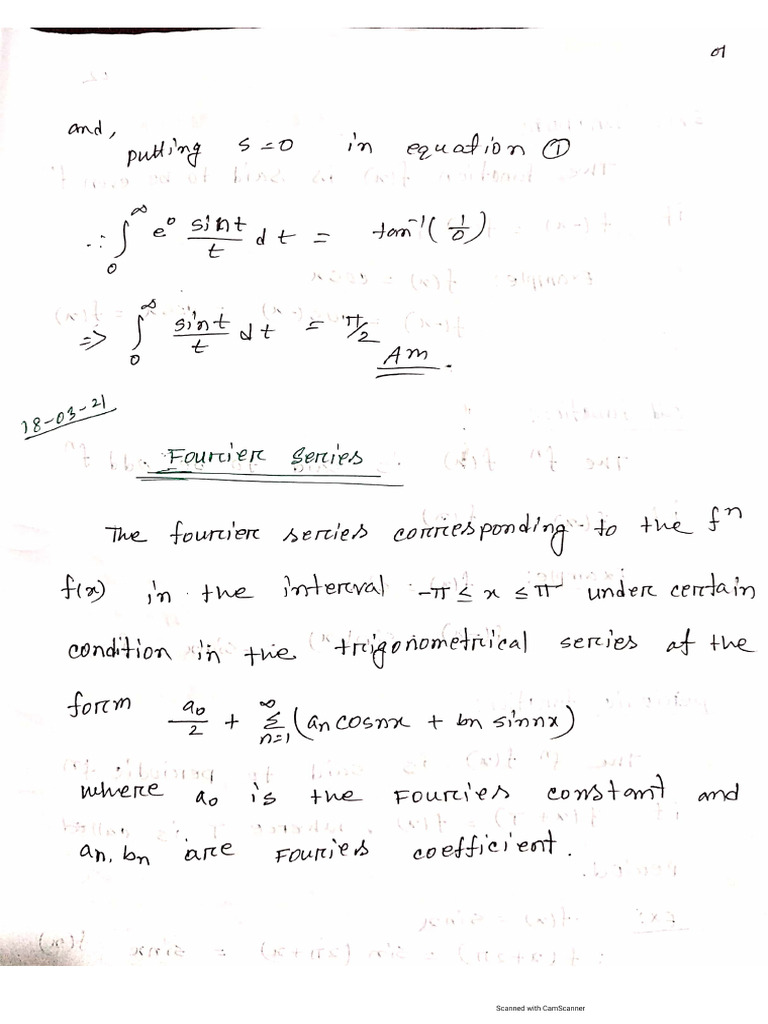 01
and, putting s=0 in equation ①
∴ ∫₀^∞ e⁰ sint/t dt = tan⁻¹(1/0)
⇒ ∫₀^∞ sint/t dt = π/2
Am.
18-03-21
Fourier Series
The fourier series corresponding to the fⁿ
f(x) in the interval -π ≤ x ≤ π under certain
condition in the trigonometrical series of the
form a₀/2 + Σ_{n=1}^∞ (aₙ cosnx + bₙ sinnx)
where a₀ is the Fouries constant and
aₙ, bₙ are Fouries coefficient.
Scanned with CamScanner